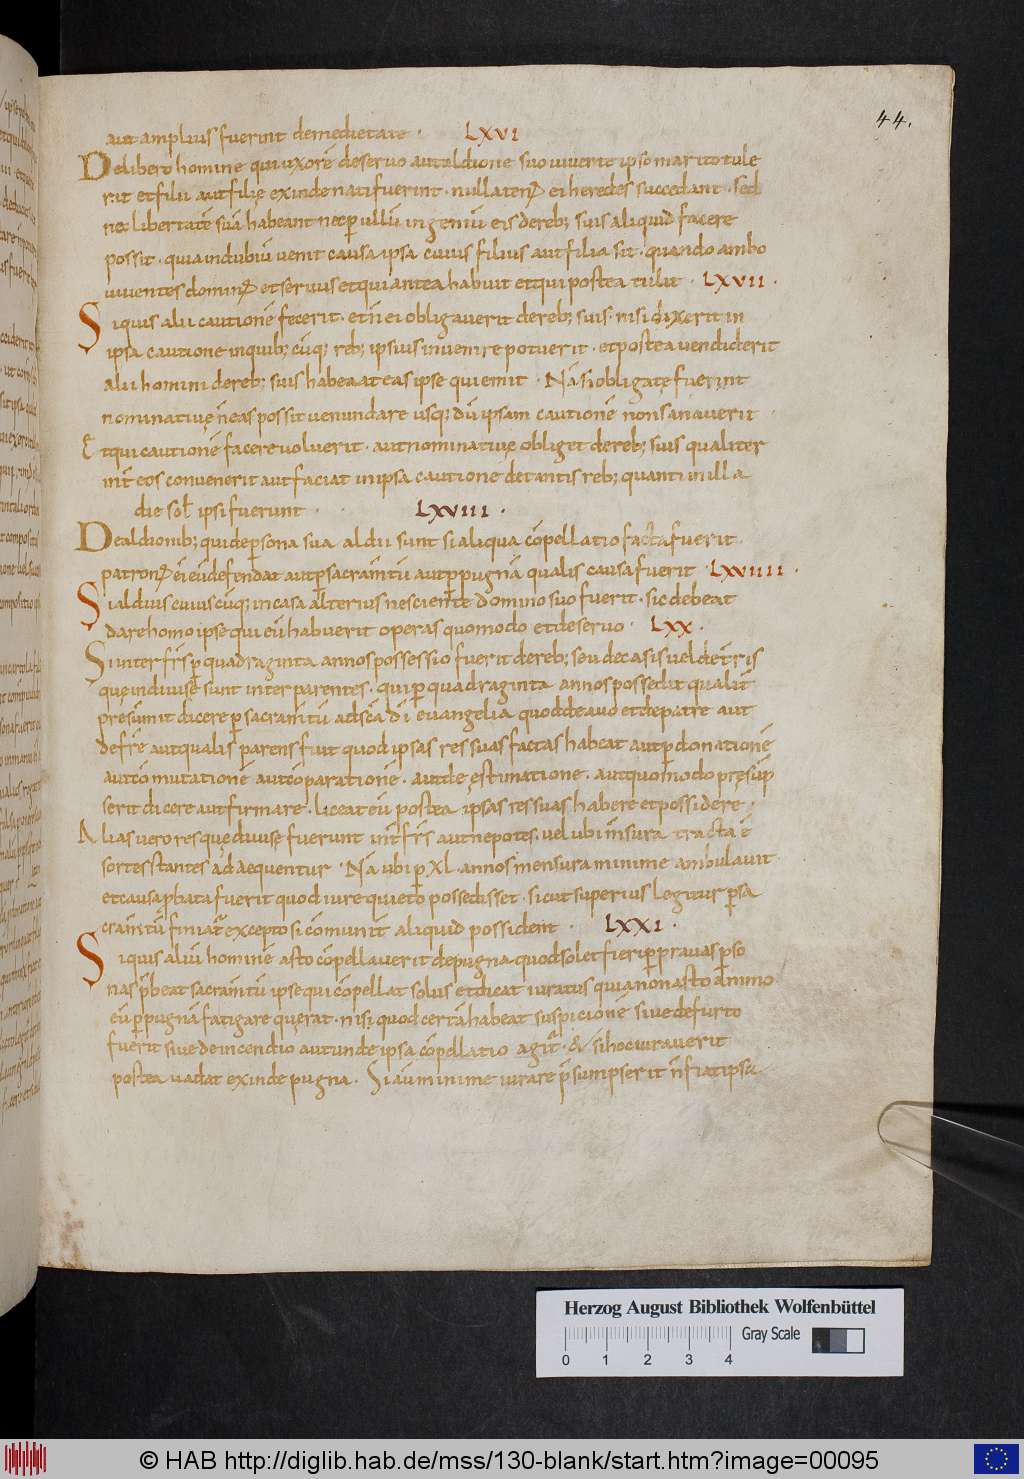 44.
aut amplius fuerint demedietate · LXVI
Delibero homine qui uxorē deservo aut aldione suo vivente ipso marito tule
rit et filii aut filię exinde nati fuerint · nullatenꝰ ei heredes succedant · sed
nec libertatē suā habeant nec ꝑ ullū ingeniū eis dereb; suis aliquid facere
possit · quia indubiū venit causa ipsa cuius filius aut filia sit · quando ambo
viventes dominꝰ et servus et qui antea habuit et qui postea tulit · LXVII ·
Si quis alii cautionē fecerit · et n̄ ei obligaverit dereb; suis · nisi dixerit in
ipsa cautione inquib; cūq; reb; ipsius invenire potuerit · et postea vendiderit
alii homini dereb; suis habeat eas ipse qui emit · Nā si obligatę fuerint
nominativę n̄ eas possit venundare usq; dū ipsam cautionē non sanaverit ·
Et qui cautionē facere voluerit · aut nominativę obliget dereb; suis qualiter
int̄ eos convenerit aut faciat in ipsa cautione detantis reb; quanti in illa
die sol̄ ipsi fuerunt · LXVIII ·
De aldionib; qui deꝑsona sua aldii sunt si aliqua cōpellatio facta fuerit ·
patronꝰ ei eū defendat aut ꝑ sacram̄tū aut ꝑ pugnā qualis causa fuerit · LXVIIII ·
Si aldius cuiuscūq; in casa alterius nesciente domino suo fuerit · sic debeat
dare homo ipse qui eū habuerit operas quomodo et deservo · LXX ·
Si inter fr̄s ꝑ quadraginta annos possessio fuerit dereb; seu decasis vel de t̄ris
quę indivisę sunt inter parentes · qui ꝑ quadraginta annos possedit qualit̄
pręsūmit dicere ꝑ sacram̄tū ad sc̄a dī evangelia quod de avo et de patre aut
de fr̄e aut qualis parens fuit quod ipsas res suas factas habeat aut ꝑ donationē
aut cōmutationē aut cōparationē · aut de ęstimatione · aut quomodo pręsūp
serit dicere aut firmare · liceat eū postea ipsas res suas habere et possidere ·
Alias vero res quę divisę fuerunt int̄ fr̄s aut nepotes · vel ubi m̄sura tracta ē
sortes stantes adaequentur · Nā ubi ꝑ XL · annos mensura minime ambulavit
et causa ꝓbata fuerit quod iure quieto possedisset · sicut superius legitur ꝑ sa
cram̄tū finiatur excepto si cōmunit̄ aliquid possident · LXXI ·
Si quis aliū hominē asto cōpellaverit de pugna quod solet fieri ꝑ pravas ꝑso
nas p̄beat sacram̄tū ipse qui cōpellat solus et dicat iuratus quia non asto animo
eū ꝑ pugnā fatigare quęrat · nisi quod certā habeat suspicionē sive de furto
fuerit sive de incendio aut unde ipsa cōpellatio agit̄ · & si hoc iuraverit
postea vadat exinde pugna · Si aūt minime iurare p̄sumpserit n̄ fiat ipsa
Herzog August Bibliothek Wolfenbüttel
Gray Scale
0 1 2 3 4
© HAB http://diglib.hab.de/mss/130-blank/start.htm?image=00095